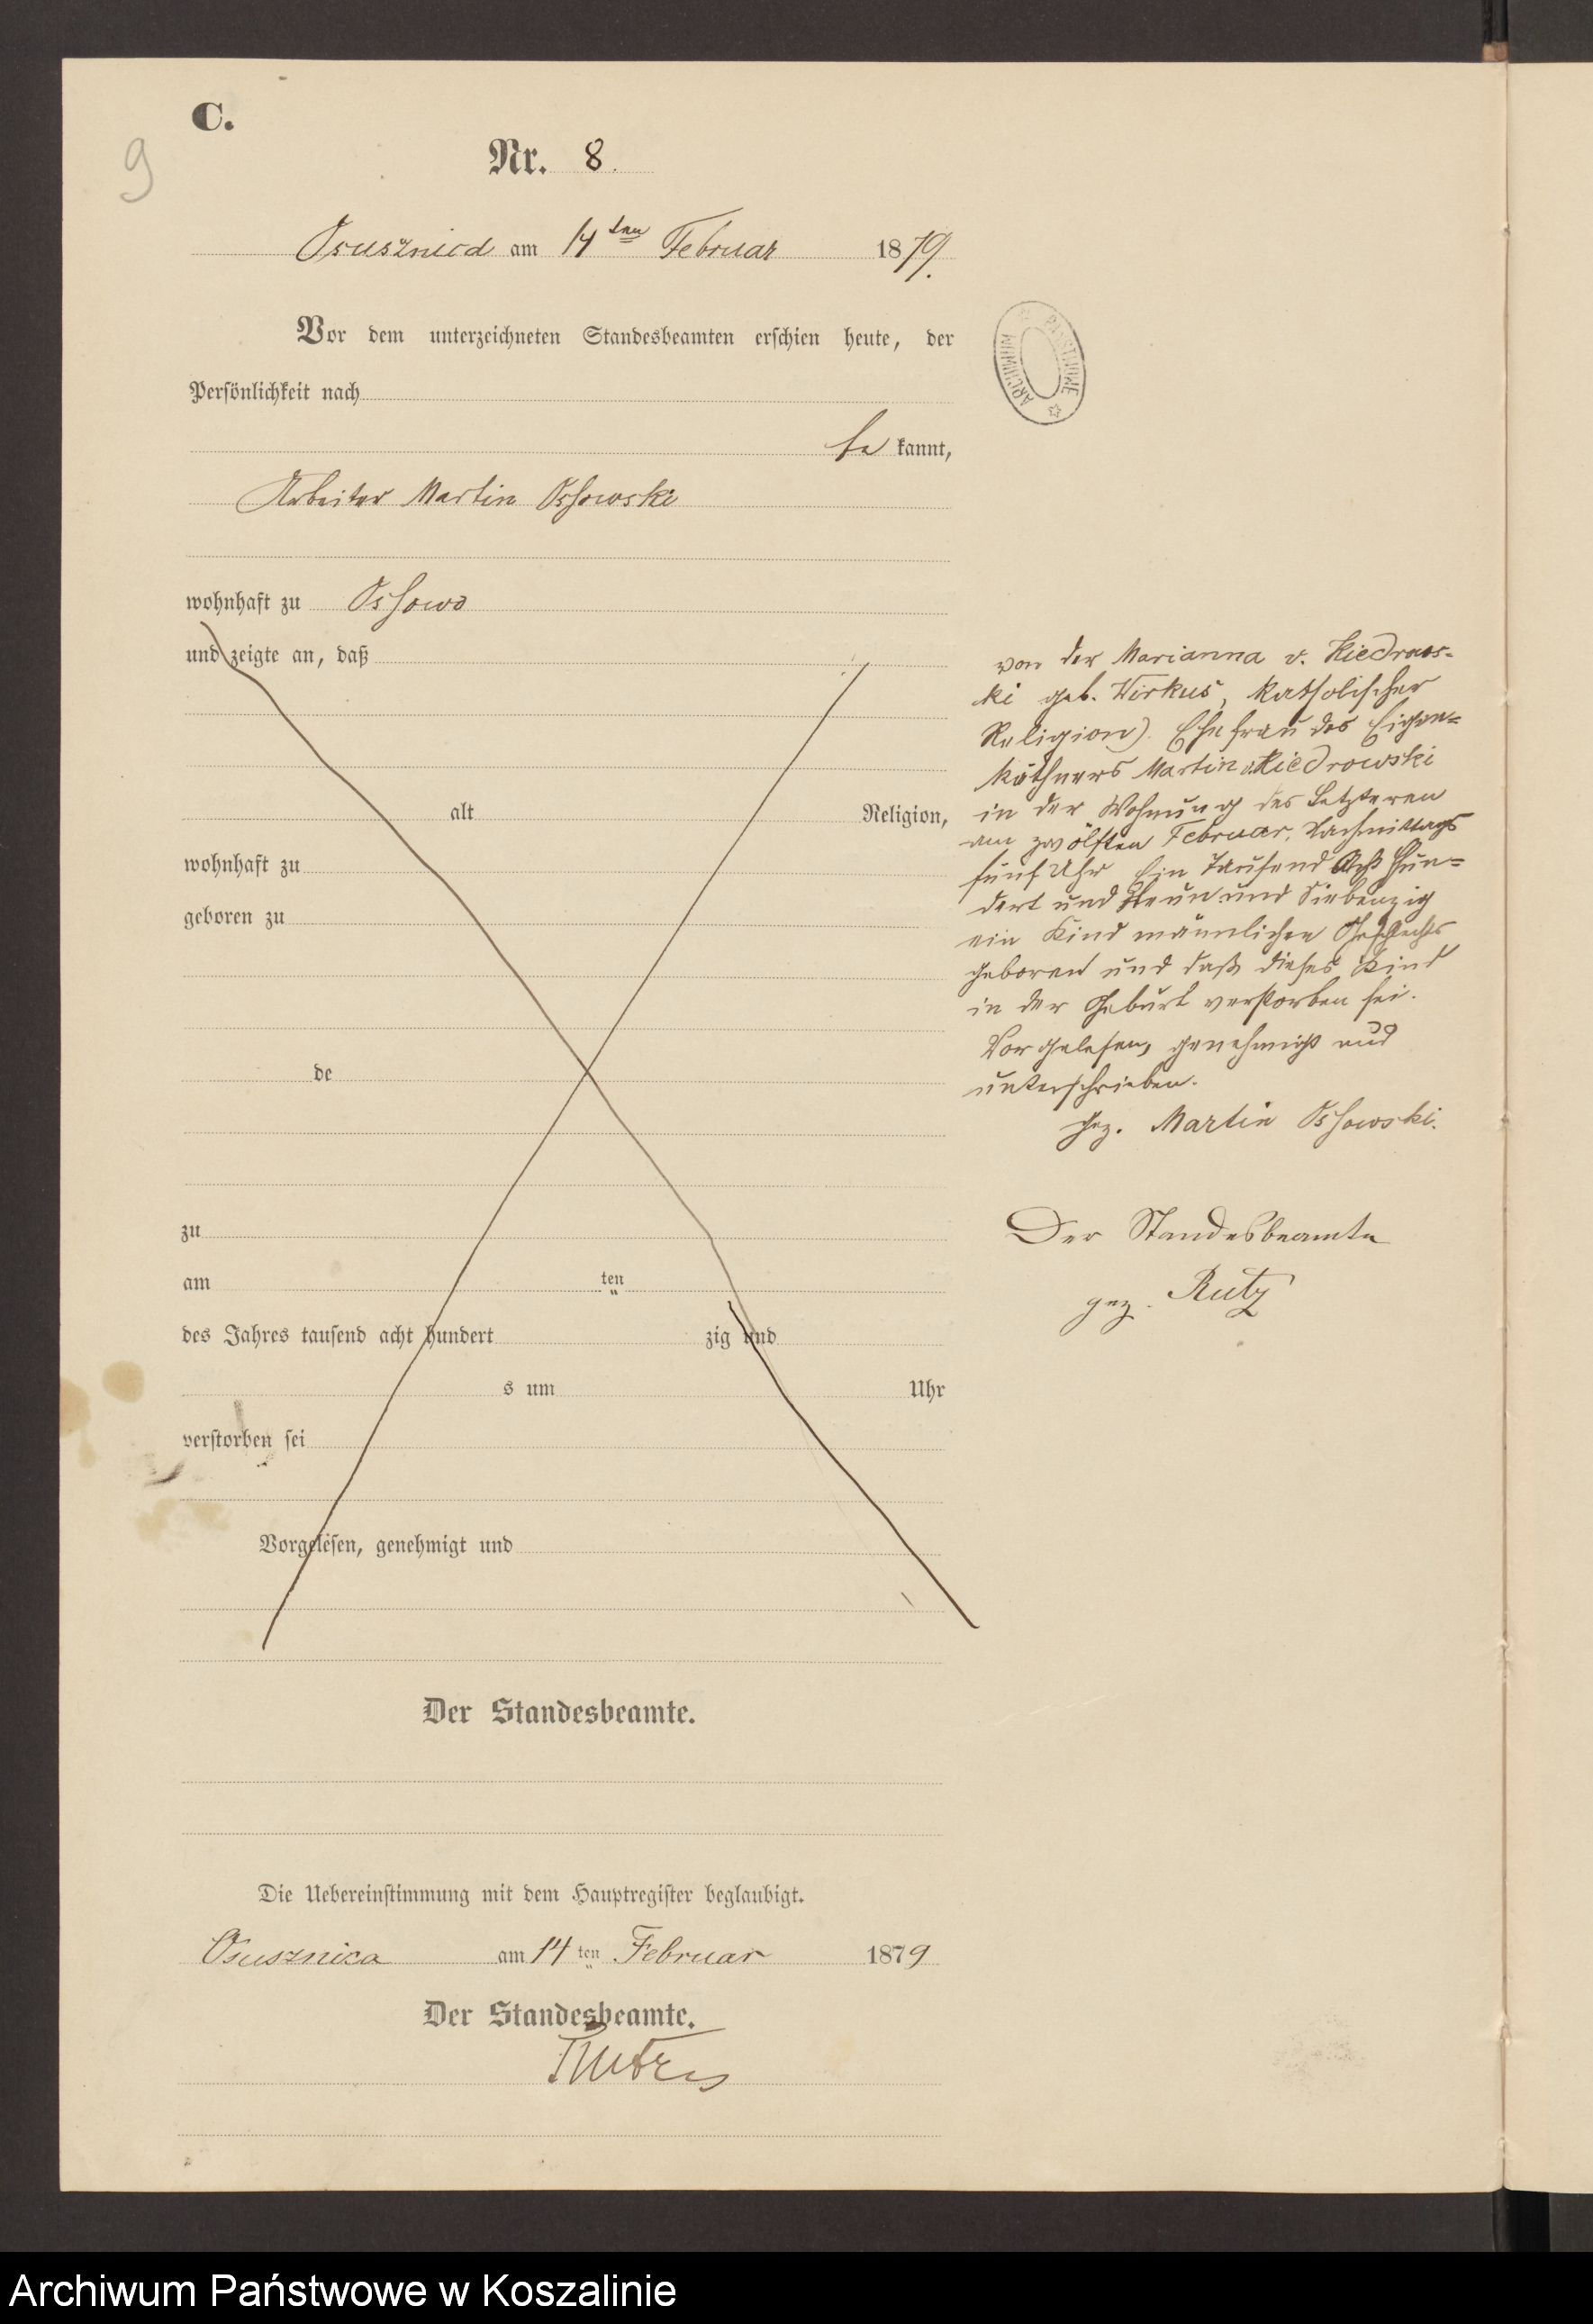 C.
9
Nr. 8.
Osusznica am 14ten Februar 1879.
Vor dem unterzeichneten Standesbeamten erschien heute, der
Persönlichkeit nach
be kannt,
Arbeiter Martin Ossowski
wohnhaft zu Ossowo
und zeigte an, daß
alt Religion,
wohnhaft zu
geboren zu
de
zu
am ten
des Jahres tausend acht hundert zig und
s um Uhr
verstorben sei
Vorgelesen, genehmigt und
Der Standesbeamte.
Die Uebereinstimmung mit dem Hauptregister beglaubigt.
Osusznica am 14 ten Februar 1879
Der Standesbeamte.
ARCHIWUM PAŃSTWOWE
von der Marianna v. Kiedrows-
ki geb. Wirkus, katholischer
Religion). Ehefrau des Eigen-
käthners Martin v. Kiedrowski
in der Wohnung des Letzteren
am zwölften Februar, Nachmittags
fünf Uhr Ein Tausend Acht Hun-
dert und Neun und Siebenzig
ein Kind männlichen Geschlechts
geboren und daß dieses Kind
in der Geburt verstorben sei.
Vorgelesen, genehmigt und
unterschrieben.
gez. Martin Ossowski.
Der Standesbeamte
gez. Rutz
Archiwum Państwowe w Koszalinie